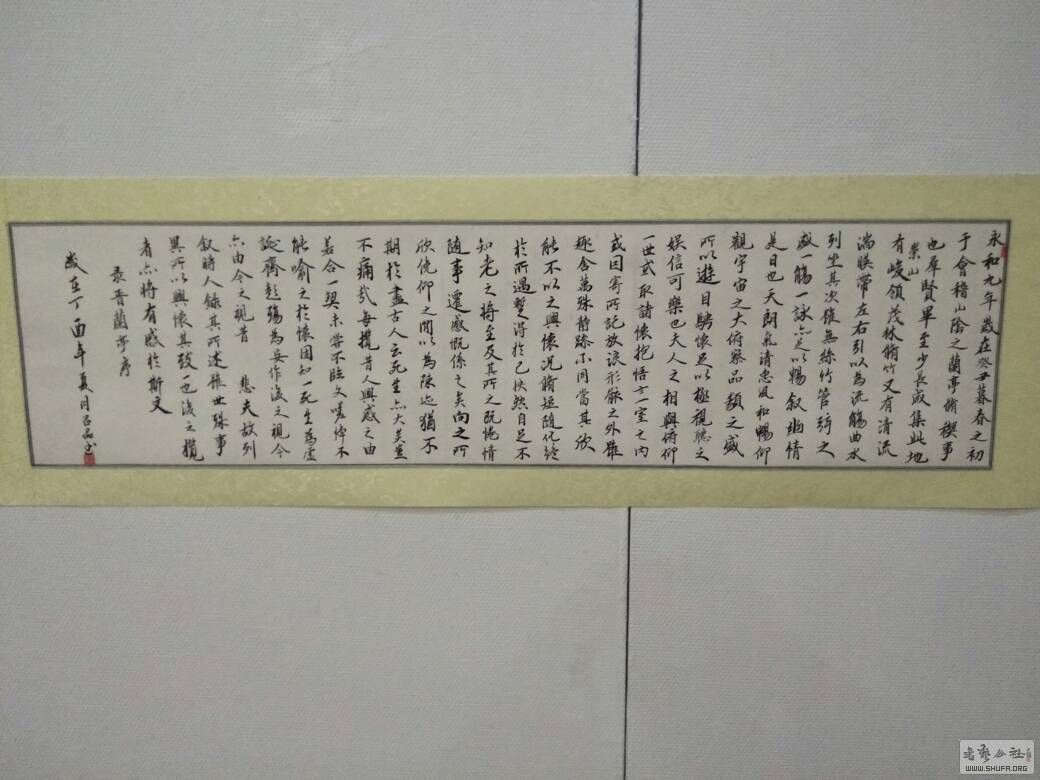 永和九年歲在癸丑暮春之初
于會稽山陰之蘭亭脩稧事
也羣賢畢至少長咸集此地
崇山
有峻領茂林脩竹又有清流激
湍暎帶左右引以為流觴曲水
列坐其次雖無絲竹管絃之
盛一觴一詠亦足以暢叙幽情
是日也天朗氣清惠風和暢仰
觀宇宙之大俯察品類之盛
所以遊目騁懷足以極視聽之
娛信可樂也夫人之相與俯仰
一世或取諸懷抱悟言一室之內
或因寄所託放浪形骸之外雖
趣舍萬殊靜躁不同當其欣
於所遇蹔得於己怏然自足不
知老之將至及其所之既惓情
隨事遷感慨係之矣向之所
欣俛仰之閒以為陳迹猶不
能不以之興懷況脩短隨化終
期於盡古人云死生亦大矣豈
不痛哉每攬昔人興感之由
若合一契未嘗不臨文嗟悼不
能喻之於懷固知一死生為虛
誕齊彭殤為妄作後之視今
亦由今之視昔 悲夫故列
叙時人錄其所述雖世殊事
異所以興懷其致一也後之攬
者亦將有感於斯文
錄晉蘭亭序
歲在丁酉年夏月呂品書
書藝公社
WWW.SHUFA.ORG